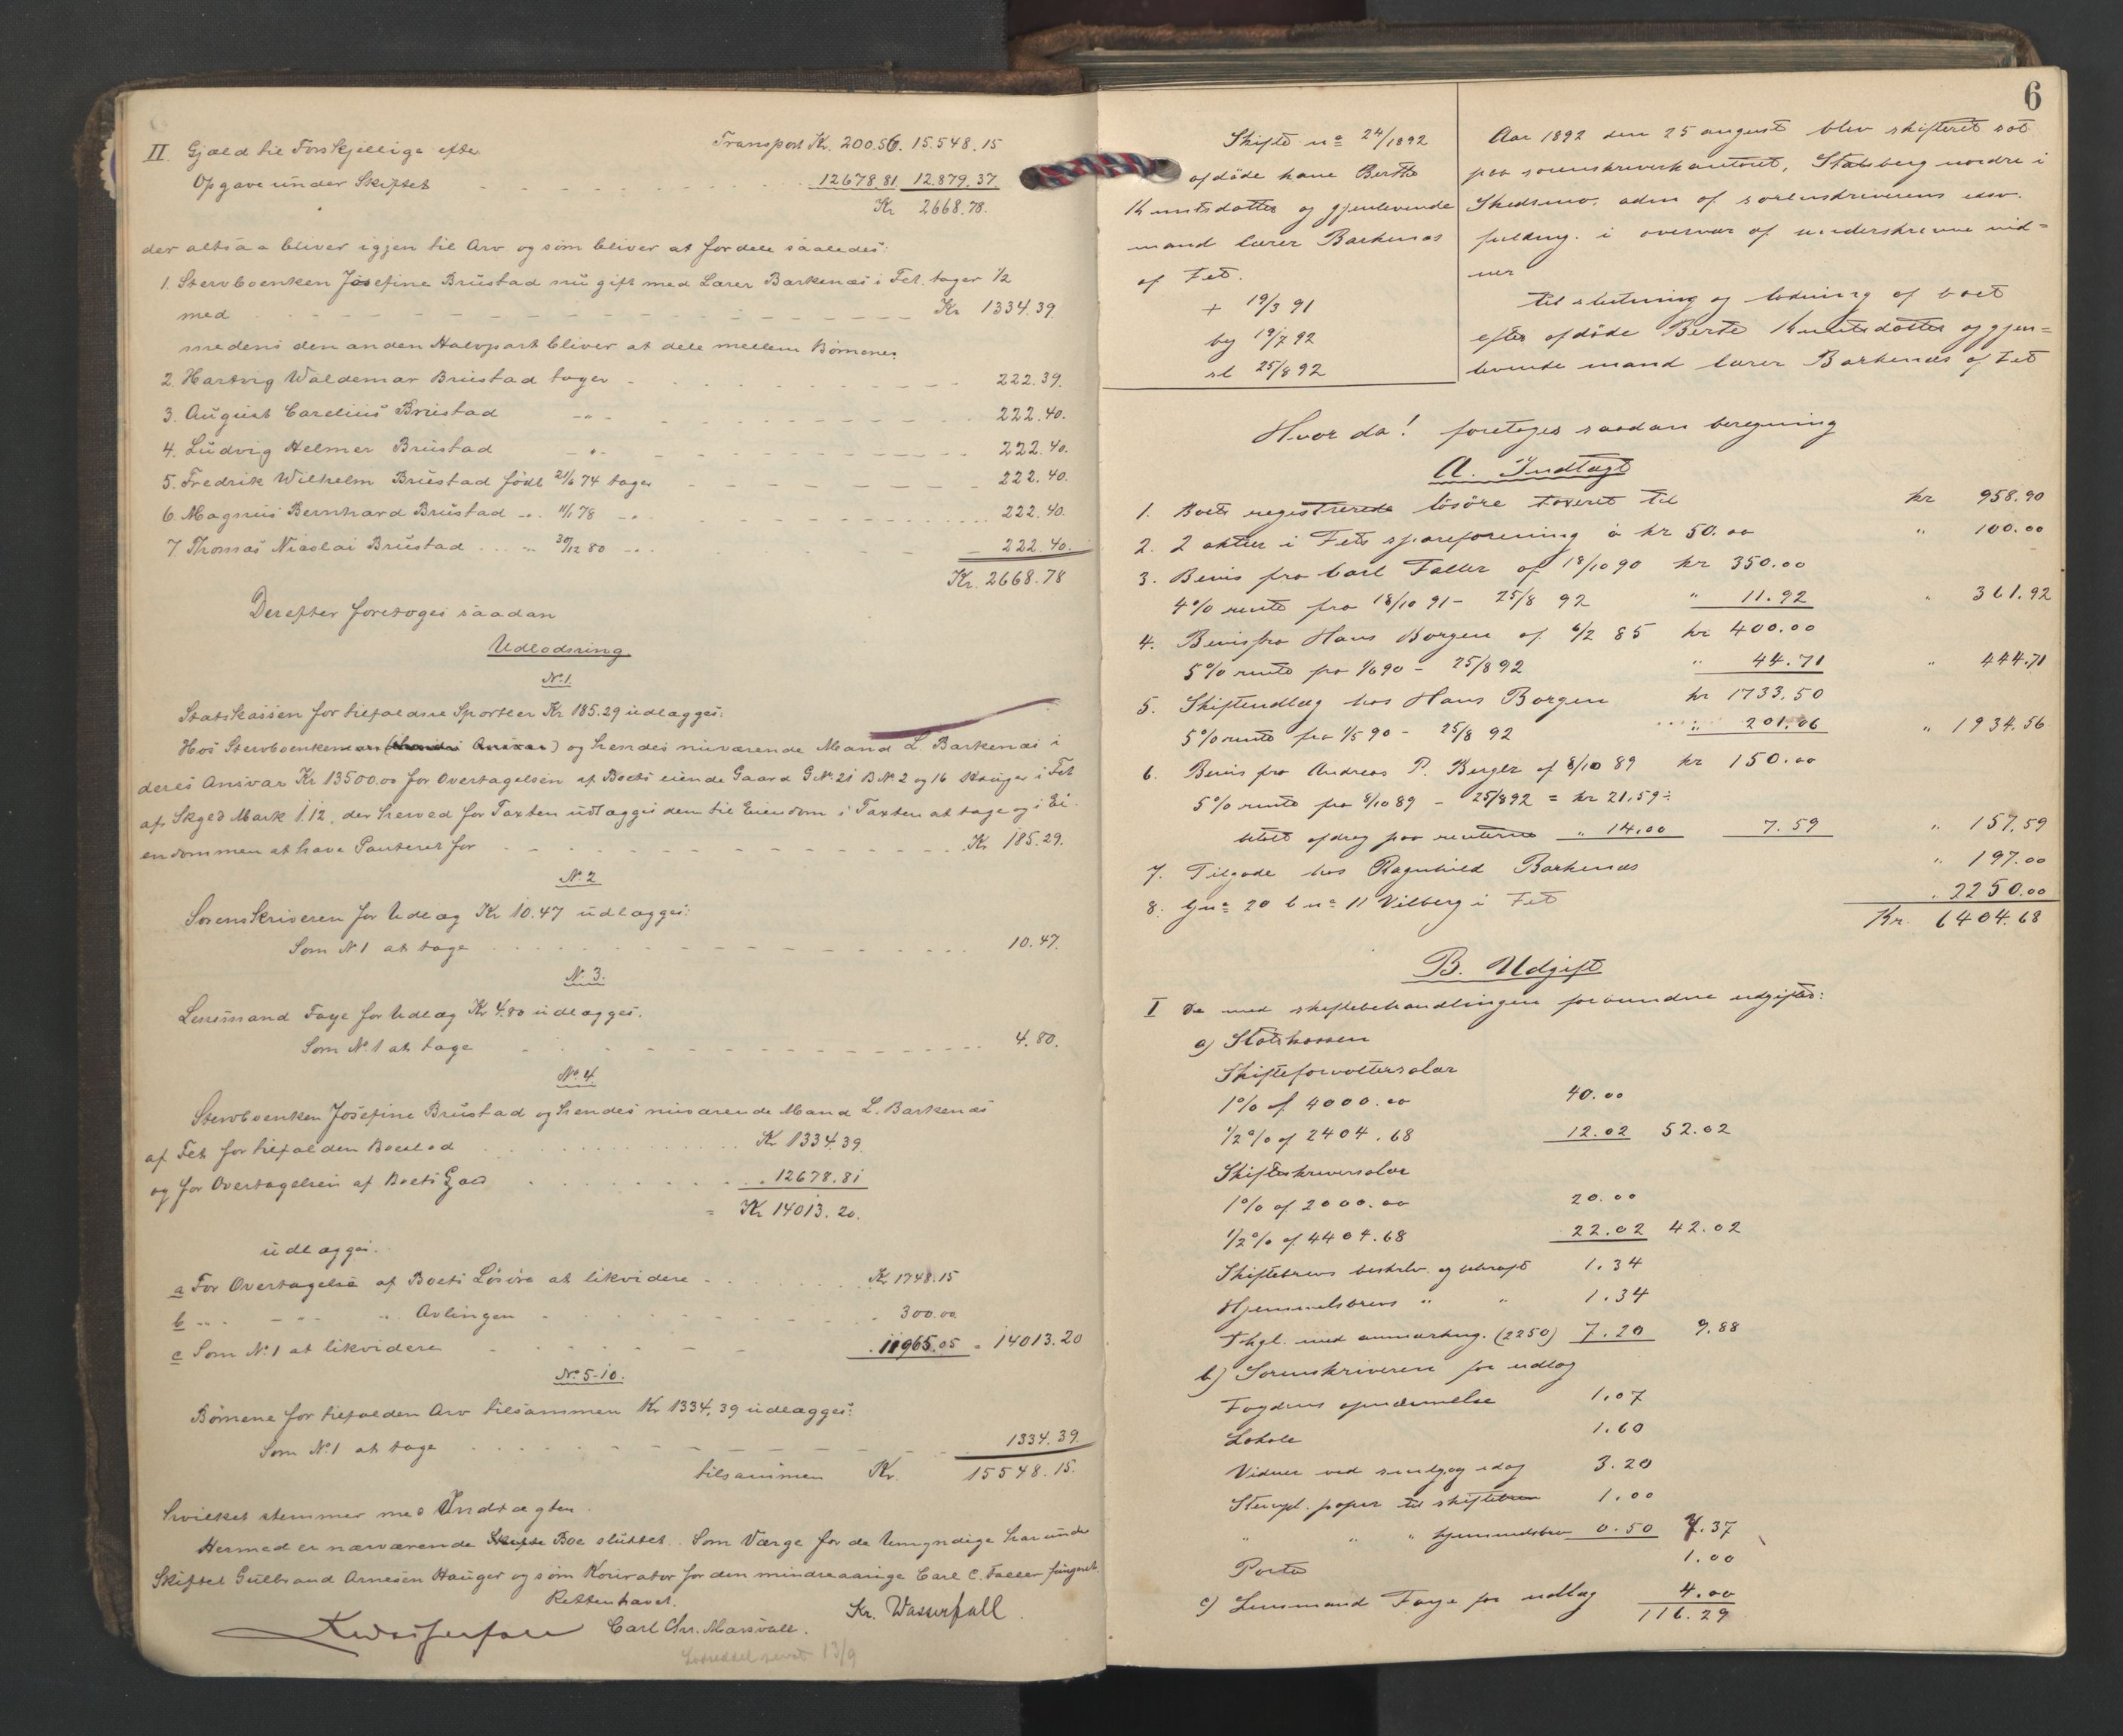 Transport Kr. 200.56. 15.548.15
II. Gjæld til Forskjellige efter
Opgave under Skiftet 12678.81 12.879.37
Kr 2668.78.
der altsaa bliver igjen til Arv og som bliver at fordele saaledes:
1. Stervboenken Josefine Brustad nu gift med Lærer Barkenæs i Fet tager 1/2
med Kr 1334.39.
medens den anden Halvpart bliver at dele mellem Børnene.
2. Hartvig Waldemar Brustad tager 222.39.
3. August Carelius Brustad -"- 222.40.
4. Ludvig Helmer Brustad -"- 222.40.
5. Fredrik Wilhelm Brustad født 21/6 74 tager 222.40.
6. Magnus Bernhard Brustad -"- 11/1 78 -"- 222.40.
7. Thomas Nicolai Brustad " 30/12 80 -"- 222.40.
Kr. 2668.78
Derefter foretoges saadan
Udlodning
No. 1.
Statskassen for tilfaldne Sportler Kr 185.29 udlægges:
Hos Stervboenken og hendes nuværende Mand L. Barkenæs i
deres Ansvar Kr 13500.00 for Overtagelsen af Boets eiende Gaard G.No. 21 B.No. 2 og 16 Hauger i Fet
af Skyld Mark 1.12, der herved for Taxten udlægges dem til Eiendom i Taxten at tage og i Ei-
endommen at have Panteret for Kr 185.29.
No. 2
Sorenskriveren for Udlæg Kr 10.47 udlægges:
Som No 1 at tage 10.47.
No. 3.
Lensmand Faye for Udlæg Kr 4.80 udlægges.
Som No. 1 at tage 4.80.
No. 4
Stervboenken Josefine Brustad og hendes nuværende Mand L. Barkenæs
af Fet for tilfalden Boeslod Kr 1334.39
og for Overtagelsen af Boets Gjæld 12678.81
= Kr 14013.20.
udlægges.
a For Overtagelse af Boets Løsøre at likvidere Kr 1748.15
b -"- -"- " Avlingen 300.00
c Som No. 1 at likvidere 11965.05 = 14013.20
No. 5-10.
Børnene for tilfalden Arv tilsammen Kr 1334.39 udlægges:
Som No. 1 at tage 1334.39.
tilsammen Kr. 15548.15.
hvilket stemmer med Indtægten.
Hermed er nærværende Boe sluttet. Som Værge for de Umyndige har under
Skiftet Gulbrand Arnesen Hauger og som Kurator for den mindreaarige Carl C. Faller fungeret.
Retten hævet.
Kr. Wasserfall.
Kr Wasserfall Carl Chr. Marsvall.
13/9
6
Skifte no 24/1892
afdøde kone Berthe
Knutsdatter og gjenlevende
mand lærer Barkenæs
af Fet.
+ 19/3 91
beg 19/7 92
sl 25/8 92
Aar 1892 den 25 august blev skifteret sat
paa sorenskriverkontoret, Stalsberg nordre i
Skedsmo, adm af sorenskriverens edsv.
fuldmg. i overvær af underskrevne vid=
ner
til slutning og lodning af boet
efter afdøde Berte Knutsdatter og gjen=
levende mand lærer Barkenæs af Fet
Hvor da! foretoges saadan beregning
A. Indtægt
1. Boets registrerede løsøre taxeret til kr 958.90
2. 2 aktier i Fets spareforening à kr 50.00 " 100.00
3. Bevis fra Carl Faller af 18/10 90 kr 350.00
4% rente fra 18/10 91 - 25/8 92 " 11.92 " 361.92
4. Bevis fra Hans Borgen af 6/2 85 kr 400.00
5% rente fra 1/6 90 - 25/8 92 " 44.71 " 444.71
5. Skifteudlæg hos Hans Borgen kr 1733.50
5% rente fra 1/5 90 - 25/8 92 " 201.06 " 1934.56
6. Bevis fra Andreas P. Berger af 8/10 89 kr 150.00
5% rente fra 8/10 89 - 25/8 92 = kr 21,59 ÷
betalt afdrag paa renterne " 14.00 7.59 " 157.59
7. Tilgode hos Ragnhild Barkenæs " 197.00
8. Gno 20 bno 11 Vilberg i Fet " 2250.00
Kr. 6404.68
B. Udgift
I De med skiftebehandlingen forbundne udgifter:
a) Statskassen
Skifteforvaltersalær
1% af 4000.00 40.00
1/2% af 2404.68 12.02 52.02
Skifteskriversalær
1% af 2000.00 20.00
1/2% af 4404.68 22.02 42.02
Skiftebrevs beskriv. og bekræft 1.34
Hjemmelsbrevs " " 1.34
Thgl. med anmærkng. (2250) 7.20 9.88
b) Sorenskriveren for udlæg
Fogdens opnævnelse 1.07
Lokale 1.60
Vidner ved smlg. og idag 3.20
Stempl. papir til skiftebrev 1.00
" " " hjemmelsbrev 0.50 7.37
Porto 1.00
c) Lensmand Faye for udlæg 4.00
116.29